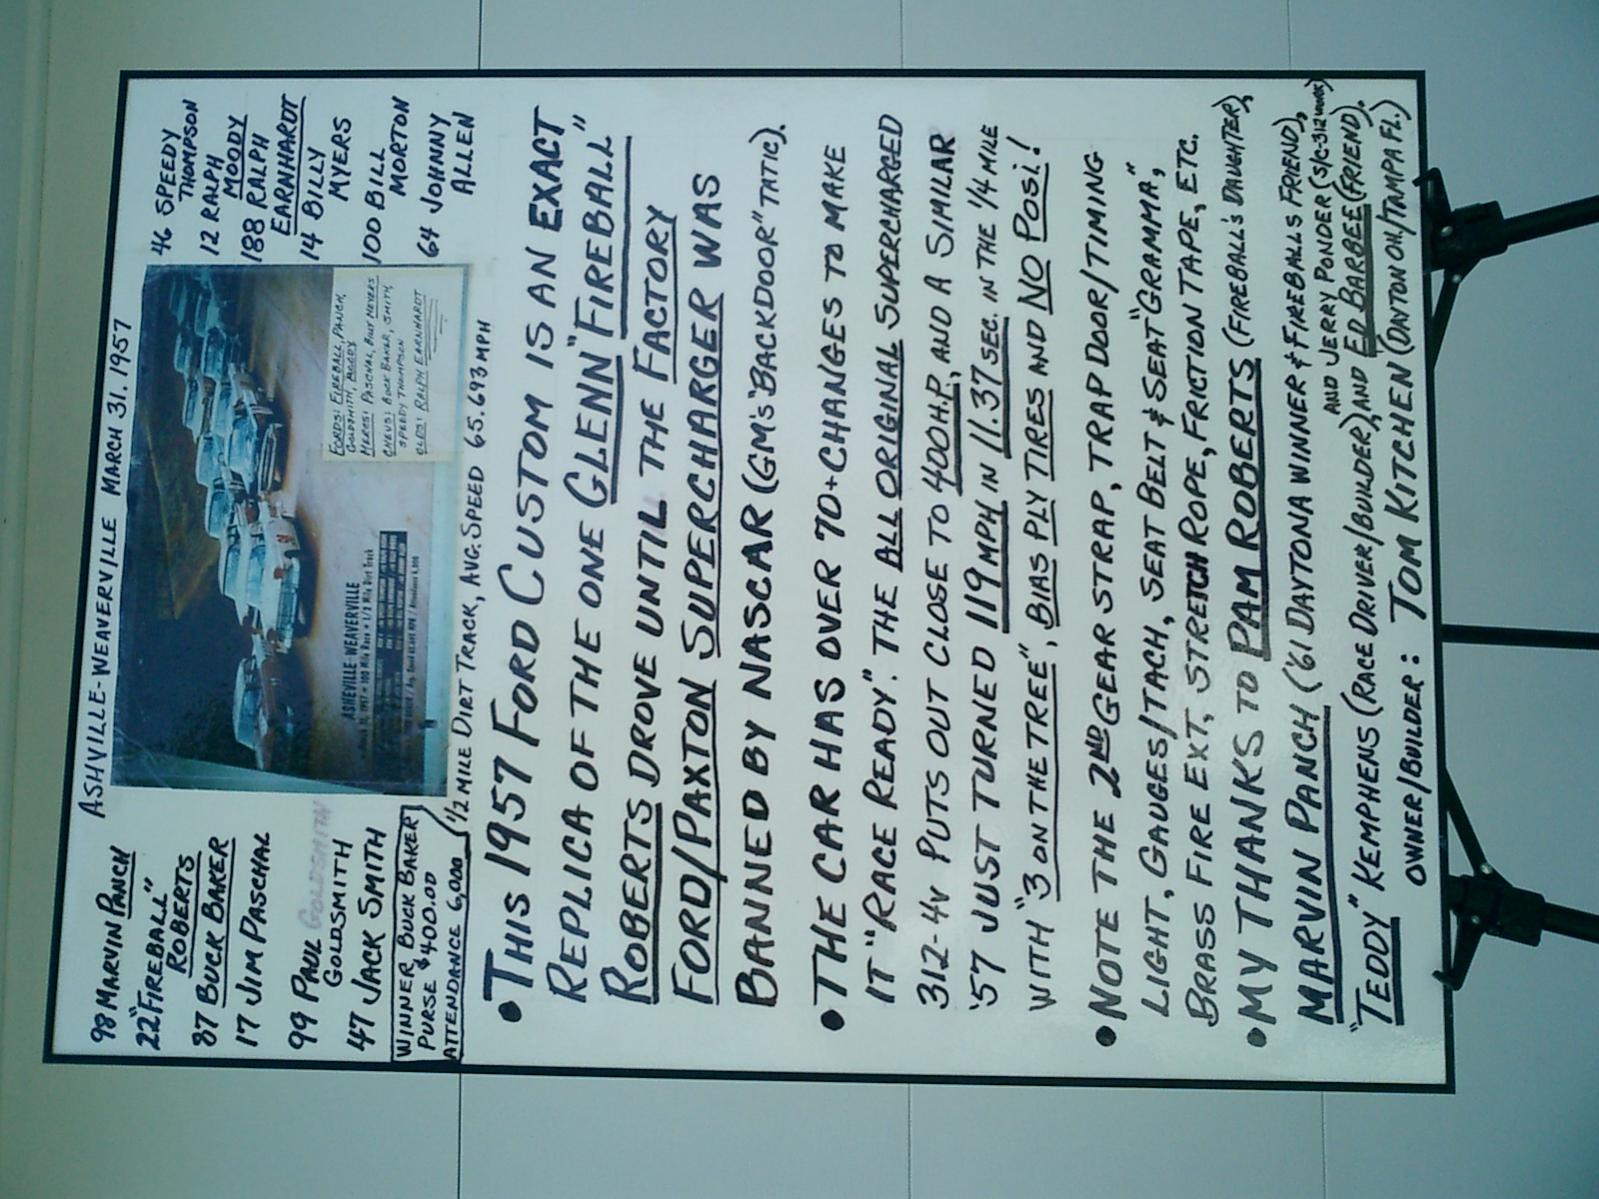 ASHVILLE-WEAVERVILLE MARCH 31, 1957
98 MARVIN PANCH
22 "FIREBALL"
ROBERTS
87 BUCK BAKER
17 JIM PASCHAL
99 PAUL GOLDSMITH
GOLDSMITH
47 JACK SMITH
WINNER BUCK BAKER
PURSE $400.00
ATTENDANCE 6,000
ASHEVILLE-WEAVERVILLE
FORDS: FIREBALL, PANCH,
GOLDSMITH, MOODY
MERCS: PASCHAL, BILLY MEYERS
CHEVS: BUCK BAKER, SMITH,
SPEEDY THOMPSON
OLDS: RALPH EARNHARDT
46 SPEEDY
THOMPSON
12 RALPH
MOODY
188 RALPH
EARNHARDT
14 BILLY
MYERS
100 BILL
MORTON
64 JOHNNY
ALLEN
(1/2 MILE DIRT TRACK, AVG. SPEED 65.693 MPH
• THIS 1957 FORD CUSTOM IS AN EXACT
REPLICA OF THE ONE GLENN "FIREBALL"
ROBERTS DROVE UNTIL THE FACTORY
FORD/PAXTON SUPERCHARGER WAS
BANNED BY NASCAR (GM'S "BACKDOOR" TATIC).
• THE CAR HAS OVER 70+ CHANGES TO MAKE
IT "RACE READY". THE ALL ORIGINAL SUPERCHARGED
312-4V PUTS OUT CLOSE TO 400 H.P. AND A SIMILAR
'57 JUST TURNED 119 MPH IN 11.37 SEC. IN THE 1/4 MILE
WITH "3 ON THE TREE", BIAS PLY TIRES AND NO POSI!
• NOTE THE 2ND GEAR STRAP, TRAP DOOR/TIMING
LIGHT, GAUGES/TACH, SEAT BELT & SEAT "GRAMMA",
BRASS FIRE EXT, STRETCH ROPE, FRICTION TAPE, ETC.
• MY THANKS TO PAM ROBERTS (FIREBALL'S DAUGHTER),
MARVIN PANCH ('61 DAYTONA WINNER & FIREBALLS FRIEND),
AND JERRY PONDER (S/C-312)
"TEDDY" KEMPHENS (RACE DRIVER/BUILDER), AND ED BARBEE (FRIEND).
OWNER/BUILDER: TOM KITCHEN (DAYTON OH/TAMPA FL.)